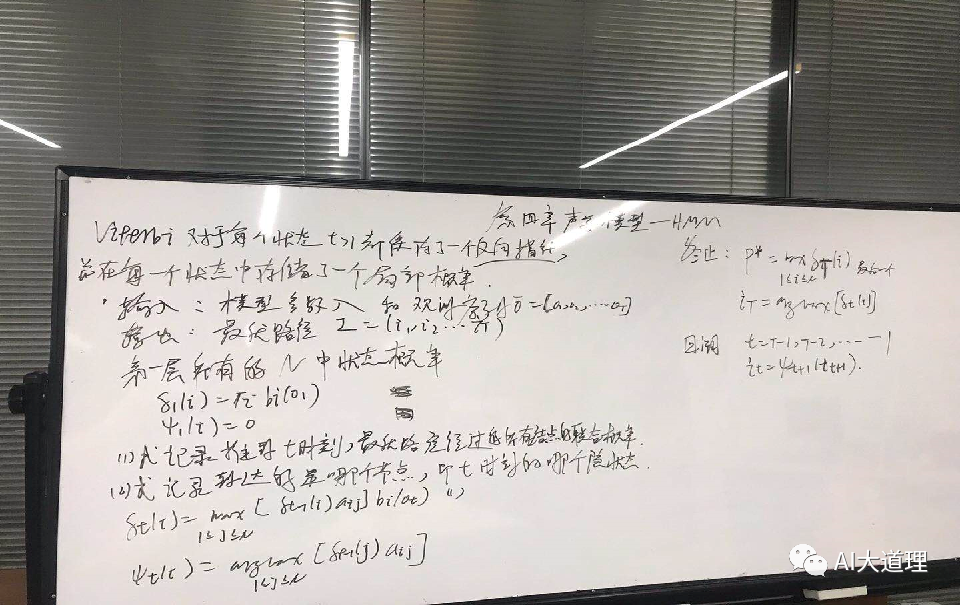 第四章 声学模型—HMM
Viterbi 对于每个状态 t>1 都保存了一个反向指针,
并在每一个状态中存储了一个局部概率.
输入：模型参数λ 和 观测序列 O = [o₁,o₂,……oT]
输出：最优路径 I = (i₁,i₂……iT)
第一层所有的 N 中状态概率
δ₁(i) = πi bi(o₁)
ψ₁(i) = 0
(1)式记录 t时刻,最优路径经过的所有结点的联合概率.
(2)式记录到达的是哪个节点, 即t时刻的哪个隐状态.
δt(i) = max [ δt-1(j) aij] bi(ot)
1≤j≤N
ψt(i) = argmax [δt-1(j) aij]
1≤j≤N
终止： P* = max δT(i) 最后一个
1≤i≤N
iT = argmax [δt(i)]
回溯 t = T-1, T-2, …… 1
it = ψt+1(it+1).
AI大道理